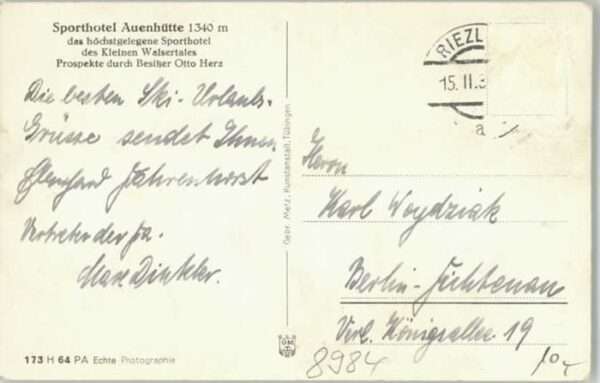 Sporthotel Auenhütte 1340 m
das höchstgelegene Sporthotel
des Kleinen Walsertales
Prospekte durch Besitzer Otto Herz
Die besten Ski-Urlaubs-
Grüsse sendet Ihnen
Fahrenhorst
Vertreter der Fa.
Max Dinkler.
173 H 64 PA Echte Photographie
Gebr. Metz, Kunstanstalt, Tübingen
GMT
RIEZL
15. II. 3
a
Herrn
Karl Woydziak
Berlin-Lichtenau
Verl. Königsallee 19
8984
10,-